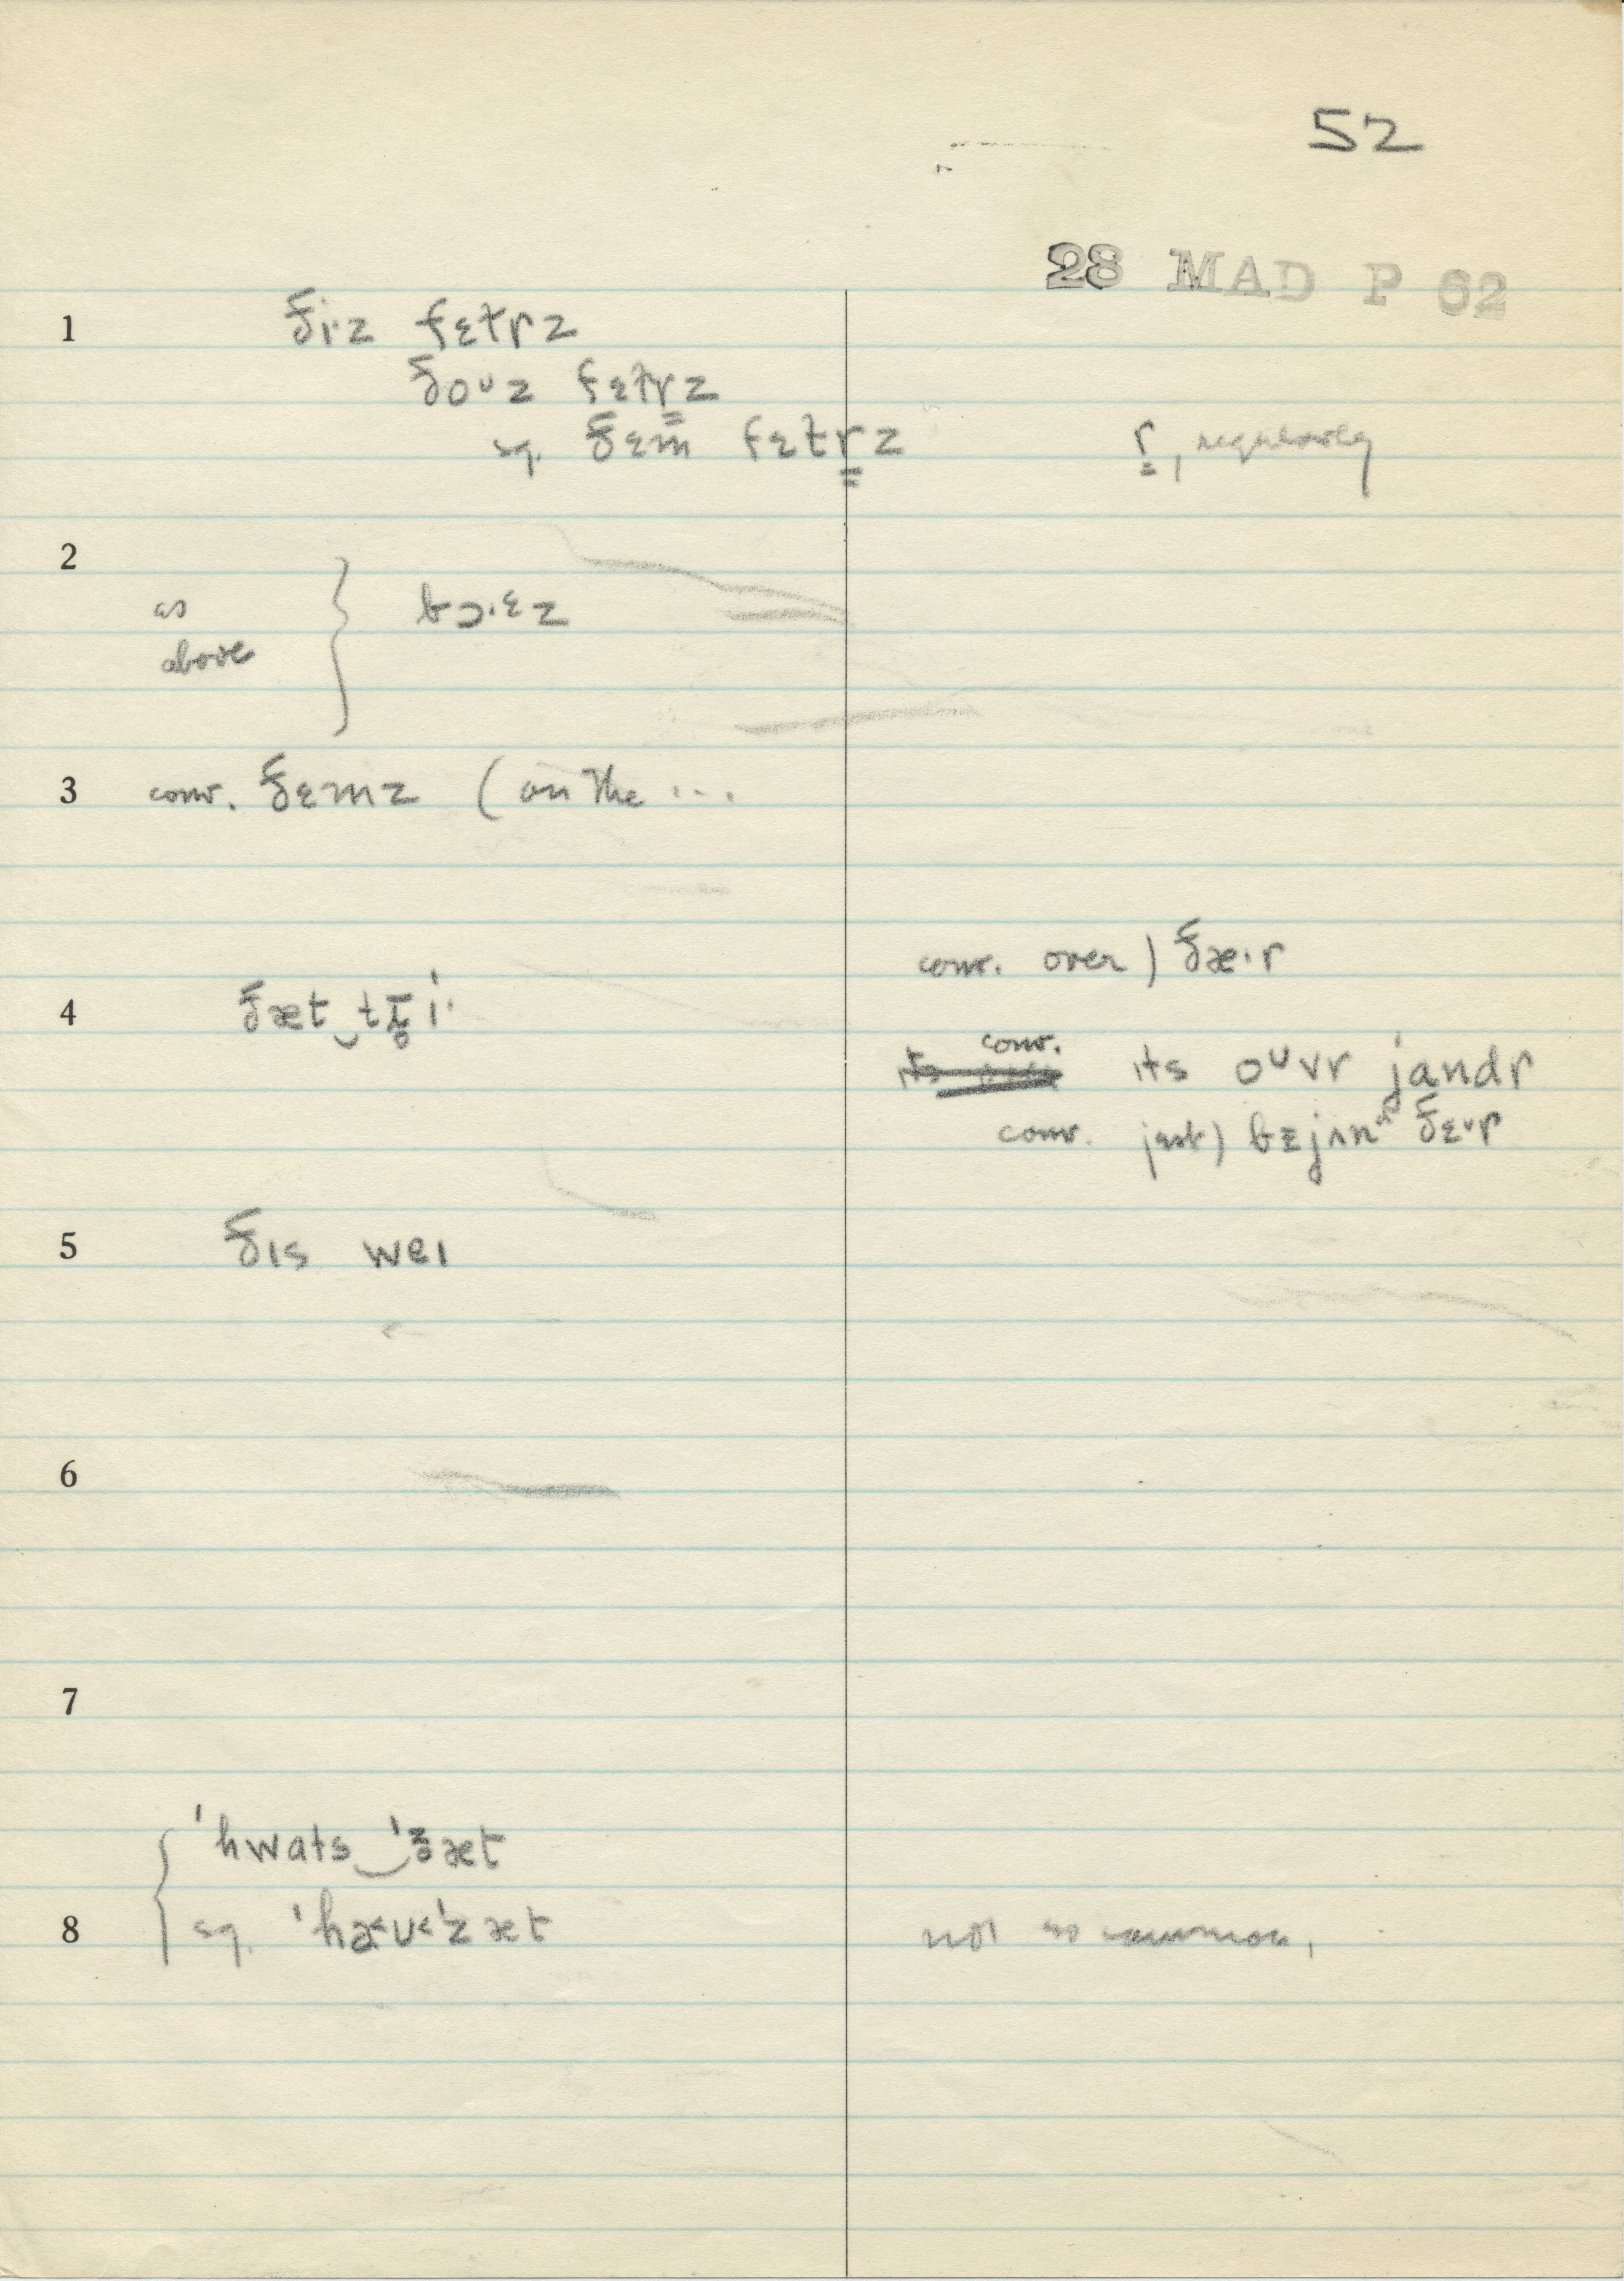 52
28 MAD P 62
1 ði·z fɛtɚz
ðoᴜz fɛtr̳z
sg. ðɛm fɛtr̳z r̳, regularly
2
as above } bɔ·ɛz
3 conv. ðɛmz (on the ...
conv. over) ðæ·r
4 ðæt‿tð̥i·
conv. its oᵁvr jandr
conv. just) bɪjʌnᵈ ðɛᵘr
5 ðɪs weɪ
6
7
ˈhwats‿ˈz̥æt
8 sg. ˈhæ˂ʊ˂ˈzæt not so common,